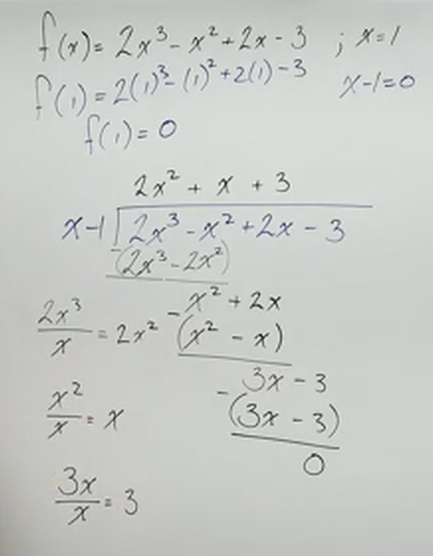 f(x) = 2x³ - x² + 2x - 3 ; x = 1
f(1) = 2(1)³ - (1)² + 2(1) - 3 x - 1 = 0
f(1) = 0
2x² + x + 3
x-1 2x³ - x² + 2x - 3
-(2x³ - 2x²)
x² + 2x
2x³/x = 2x² -(x² - x)
3x - 3
x²/x = x -(3x - 3)
0
3x/x = 3